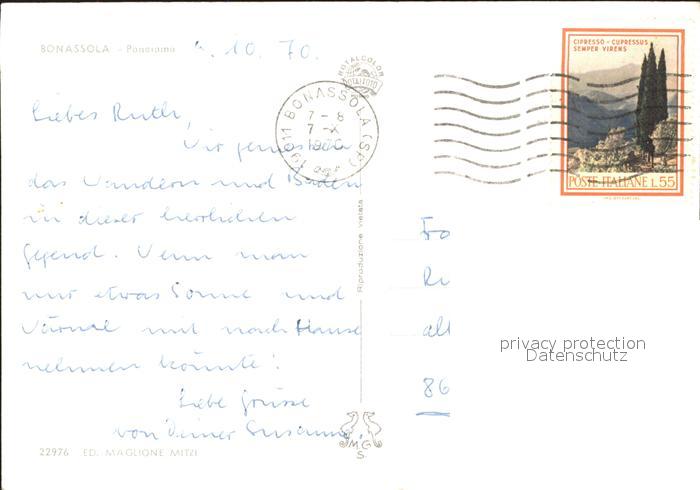 BONASSOLA - Panorama
4. 10. 70.
Liebes Ruthli,
Wir geniessen
das Wandern und Baden
in dieser herrlichen
Gegend. Wenn man
nur etwas Sonne und
Wärme mit nach Hause
nehmen könnte!
Liebe Grüsse
von Deiner Susanne.
22976 ED. MAGLIONE MITZI
ROTALCOLOR
ROTALFOTO
19011 BONASSOLA (SP)
7 - 8
7 - X
1970
Riproduzione vietata
M.G.
S.
CIPRESSO - CUPRESSUS
SEMPER VIRENS
POSTE ITALIANE L.55
Fr
Ru
alt
86
privacy protection
Datenschutz